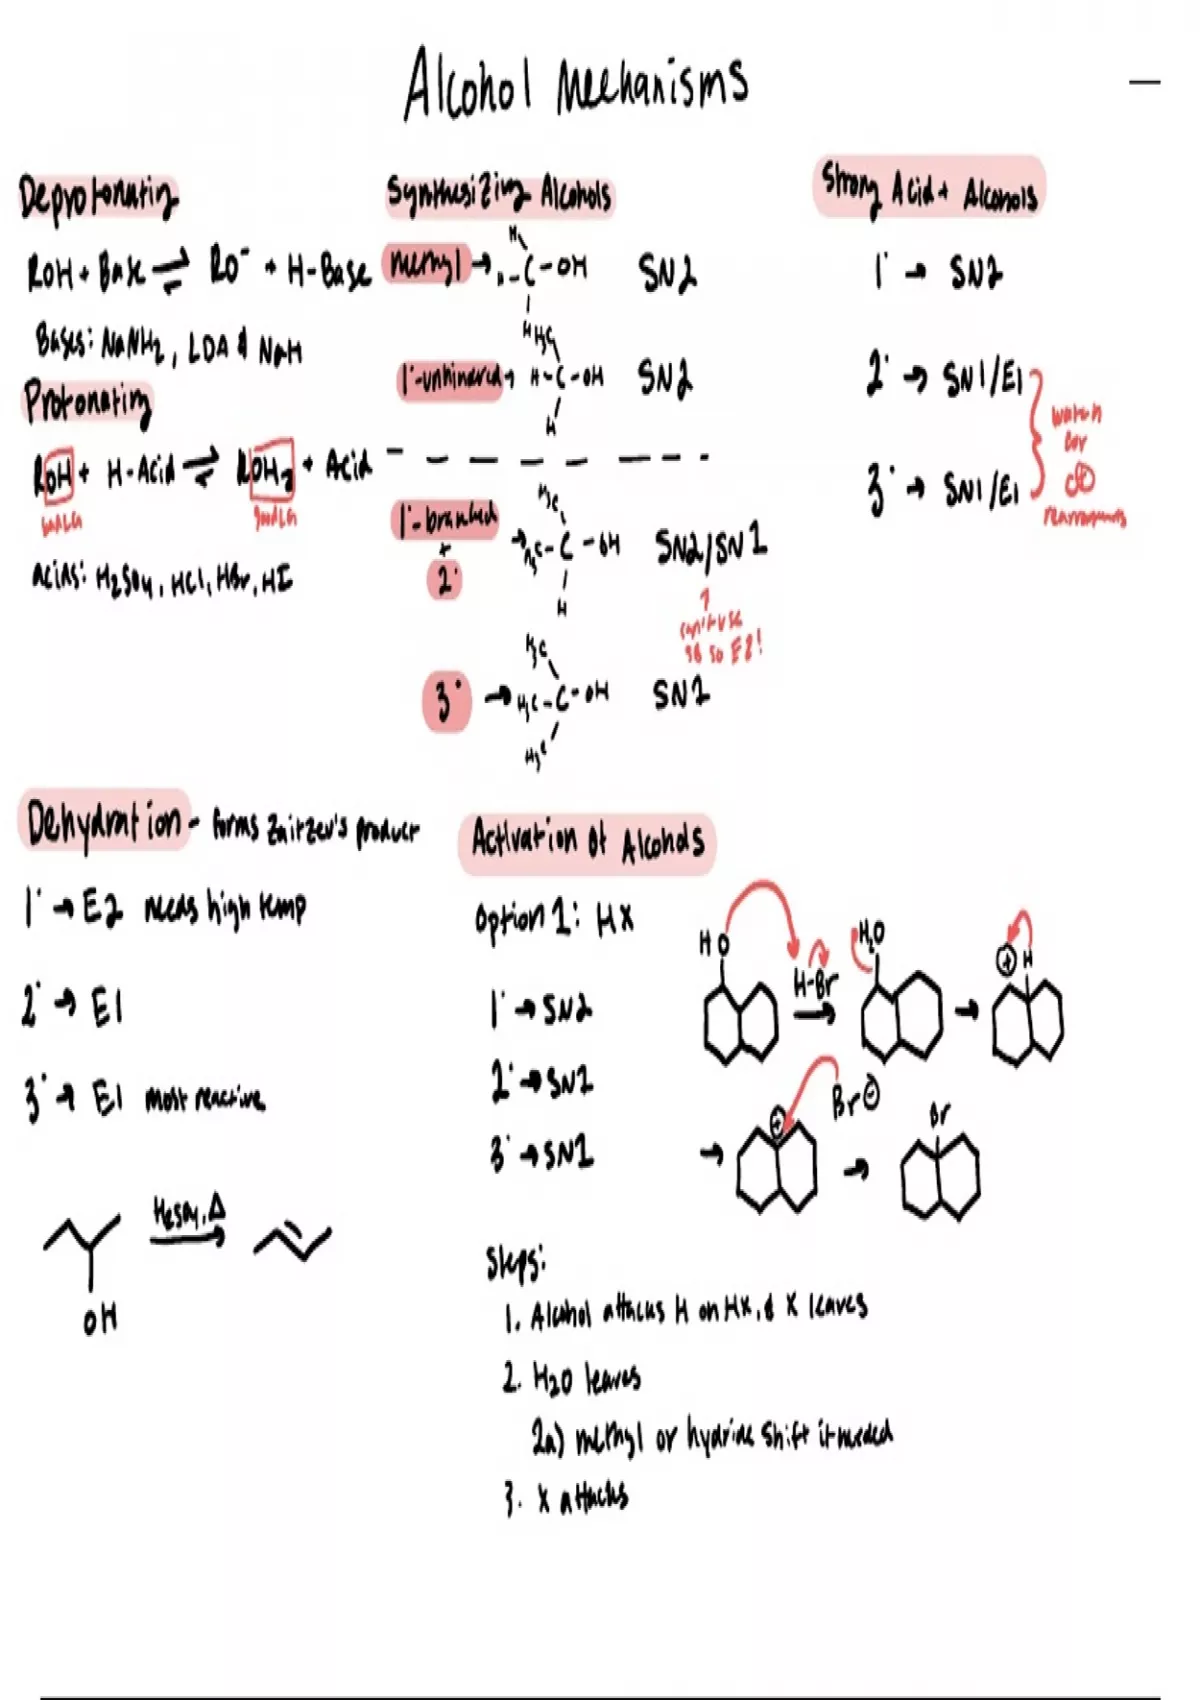 Alcohol Mechanisms
Deprotonating
ROH + Base ⇌ RO⁻ + H-Base
Bases: NaNH₂, LDA & NaH
Protonating
ROH + H-Acid ⇌ ROH₂ + Acid
bad LG
good LG
acids: H₂SO₄, HCl, HBr, HI
Synthesizing Alcohols
methyl →
H
C-OH
H
SN2
1°-unhindered →
H₃C
H-C-OH
H
SN2
1°-branched
+
2°
→
H₃C
H₃C-C-OH
H
SN2/SN1
↑
can't use
SB so E2!
3° →
H₃C
H₃C-C-OH
H₃C
SN1
Strong Acid + Alcohols
1° → SN2
2° → SN1/E1
3° → SN1/E1
watch
for
C⊕
rearrangements
Dehydration - forms Zaitzev's product
1° → E2 needs high temp
2° → E1
3° → E1 most reactive
H₂SO₄, Δ
OH
Activation of Alcohols
Option 1: HX
1° → SN2
2° → SN1
3° → SN1
HO
H-Br
H₂O
⊕ H
⊕
Br⊖
Br
Steps:
1. Alcohol attacks H on HX, & X leaves
2. H₂O leaves
2a) methyl or hydride shift if needed
3. X attacks